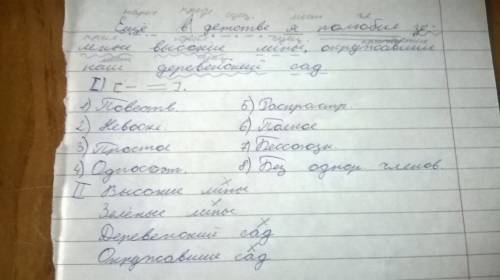 нареч предл сущ мест гл
Ещё в детстве я полюбил зе-
лёные высокие липы, окружавшие
наш деревенский сад
I) [– =].
1) Повеств. 5) Распростр.
2) Невоскл. 6) Полное
3) Простое 7) Бессоюзн
4) Односост. 8) Без однор членов.
II Высокие липы
Зелёные липы
Деревенский сад
Окружавшие сад